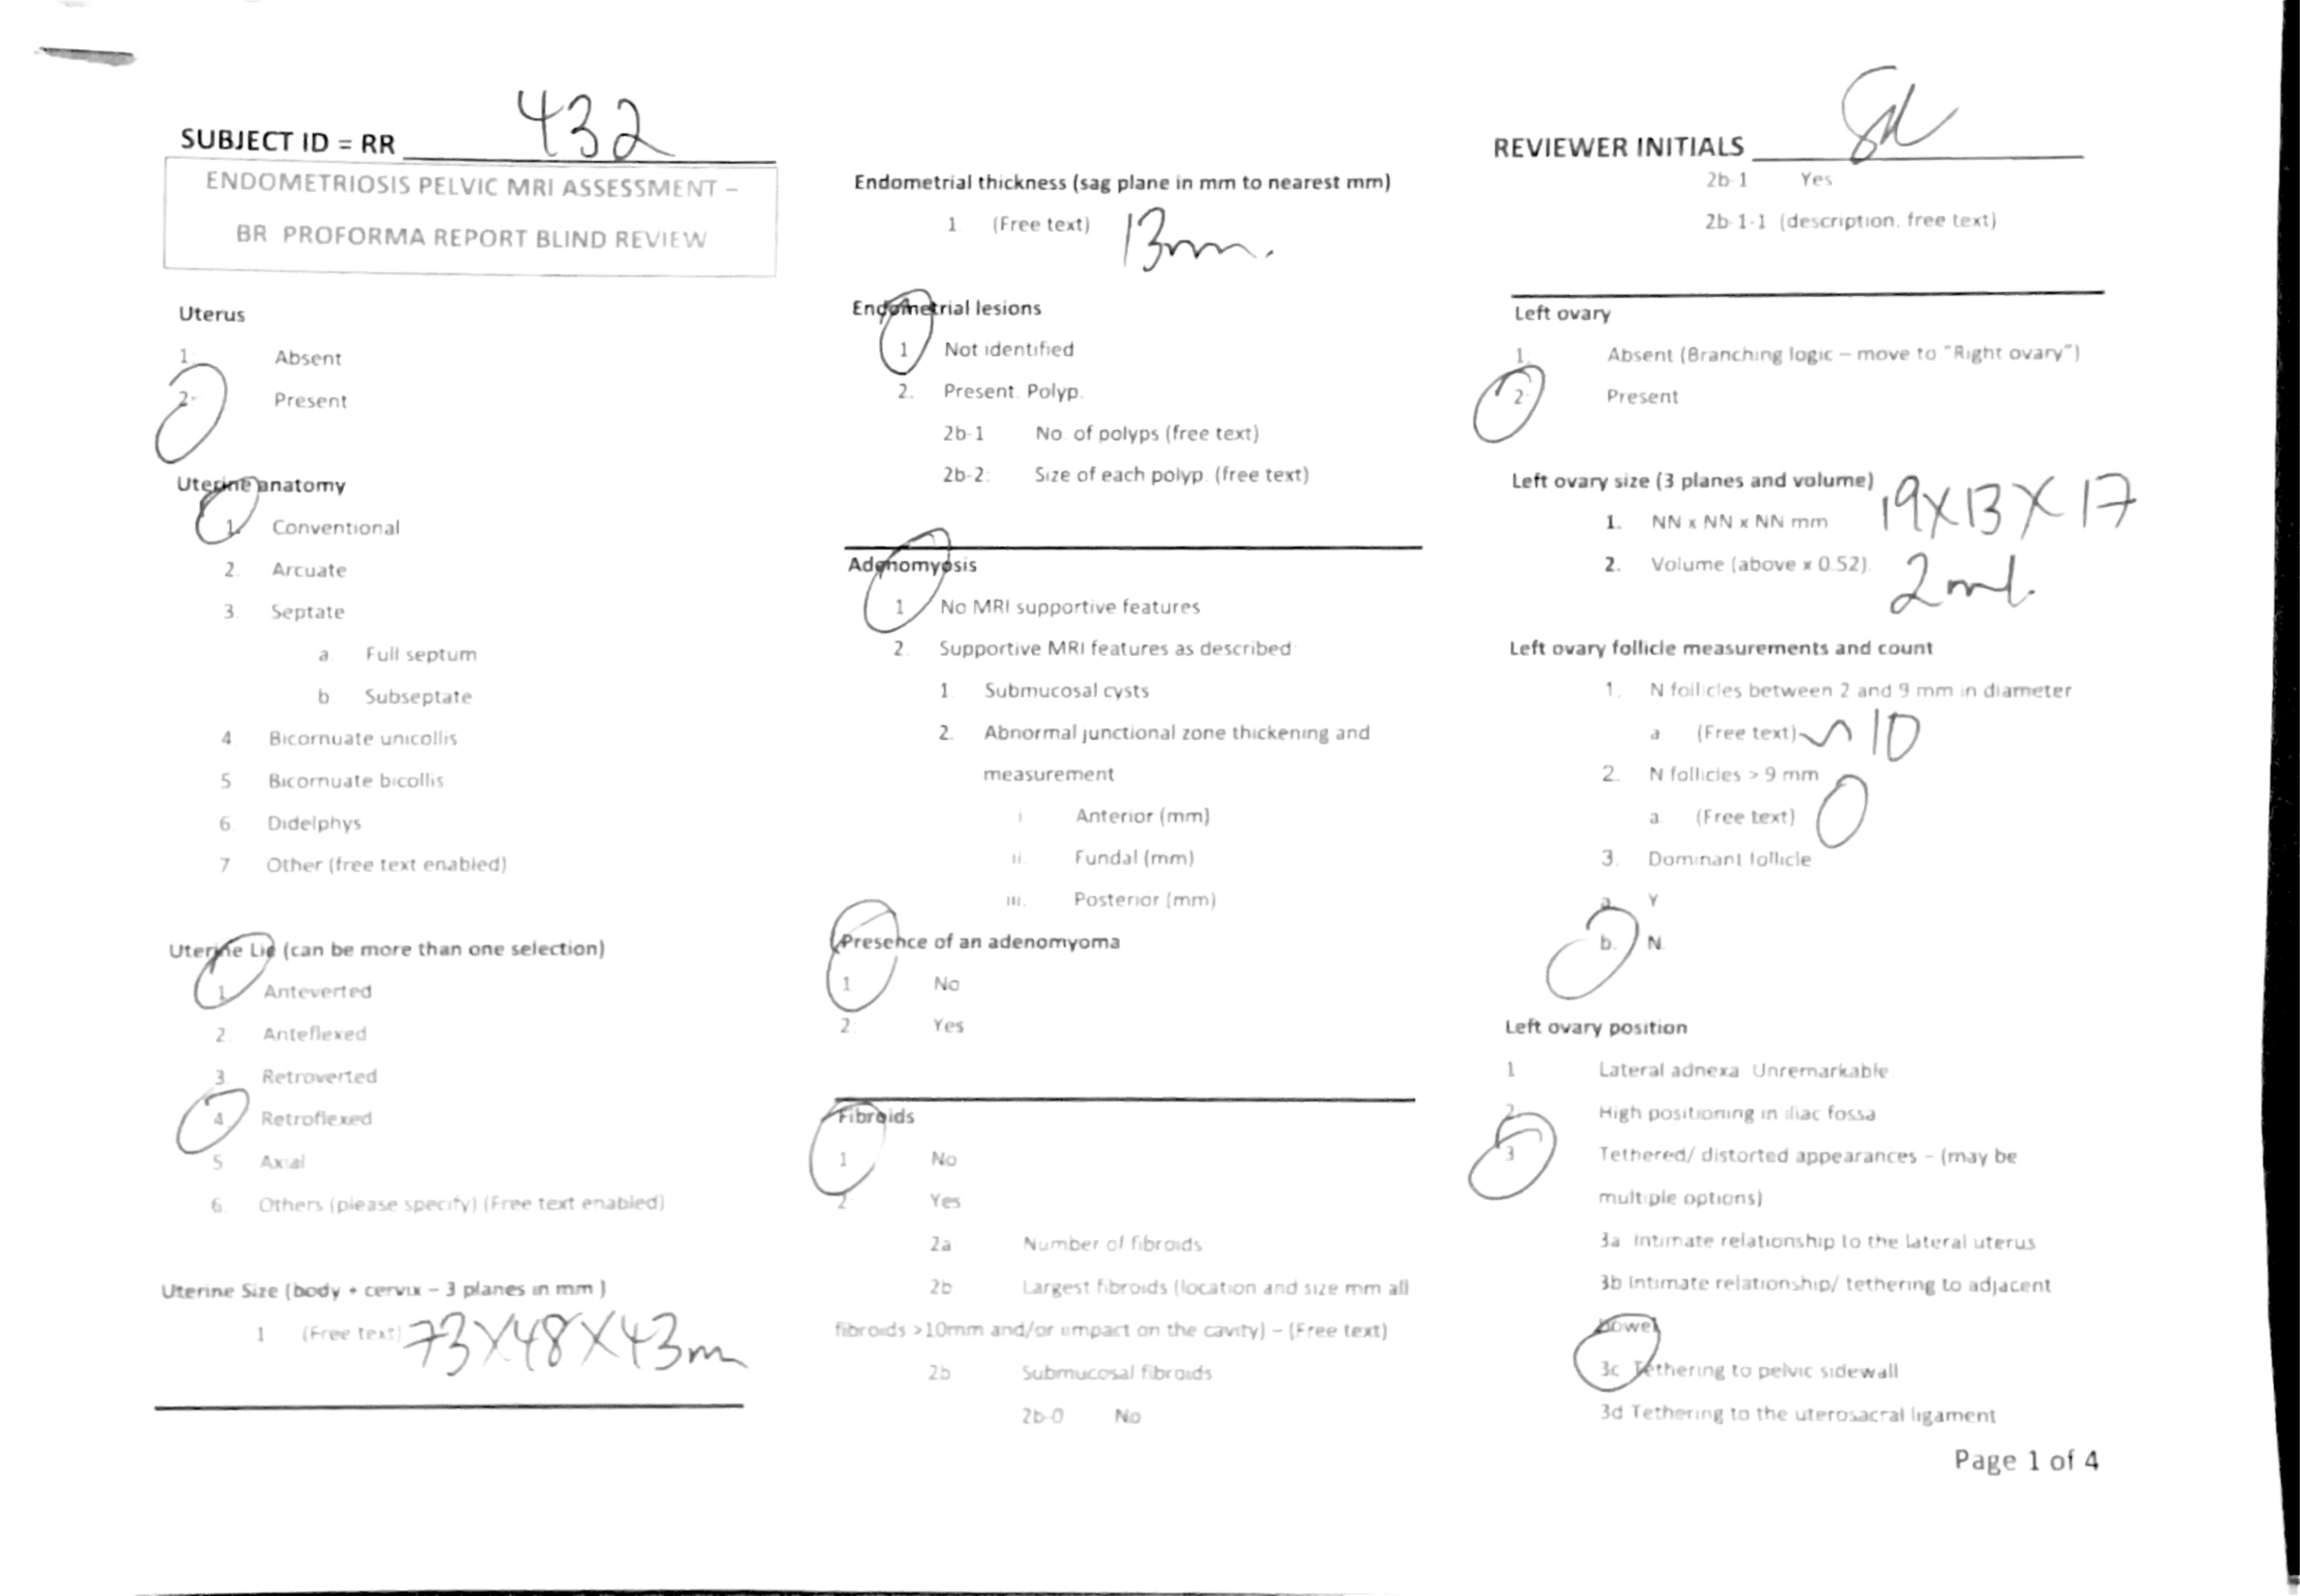 SUBJECT ID = RR 432
ENDOMETRIOSIS PELVIC MRI ASSESSMENT –
BR PROFORMA REPORT BLIND REVIEW
Uterus
1. Absent
2. Present
Uterine anatomy
1. Conventional
2. Arcuate
3. Septate
a. Full septum
b Subseptate
4 Bicornuate unicollis
5 Bicornuate bicollis
6. Didelphys
7 Other (free text enabled)
Uterine Lie (can be more than one selection)
1. Anteverted
2. Anteflexed
3. Retroverted
4. Retroflexed
5 Axial
6. Others (please specify) (Free text enabled)
Uterine Size (body + cervix – 3 planes in mm )
1 (Free text) 73X48X43m
Endometrial thickness (sag plane in mm to nearest mm)
1 (Free text) 13mm.
Endometrial lesions
1 Not identified
2. Present. Polyp.
2b-1 No. of polyps (free text)
2b-2: Size of each polyp. (free text)
Adenomyosis
1 No MRI supportive features
2. Supportive MRI features as described:
1. Submucosal cysts
2. Abnormal junctional zone thickening and
measurement
i Anterior (mm)
ii. Fundal (mm)
iii. Posterior (mm)
Presence of an adenomyoma
1 No
2. Yes
Fibroids
1 No
2 Yes
2a Number of fibroids
2b Largest fibroids (location and size mm all
fibroids >10mm and/or impact on the cavity) – (Free text)
2b Submucosal fibroids
2b-0 No
REVIEWER INITIALS
2b-1 Yes
2b-1-1 (description, free text)
Left ovary
1. Absent (Branching logic – move to "Right ovary")
2. Present
Left ovary size (3 planes and volume)
1. NN x NN x NN mm 19X13X17
2. Volume (above x 0.52). 2ml.
Left ovary follicle measurements and count
1. N follicles between 2 and 9 mm in diameter
a (Free text) ~ 10
2. N follicles > 9 mm
a. (Free text) 0
3. Dominant follicle
a. Y
b. N.
Left ovary position
1 Lateral adnexa Unremarkable
2. High positioning in iliac fossa
3 Tethered/ distorted appearances – (may be
multiple options)
3a Intimate relationship to the lateral uterus
3b Intimate relationship/ tethering to adjacent
bowel
3c Tethering to pelvic sidewall
3d Tethering to the uterosacral ligament
Page 1 of 4